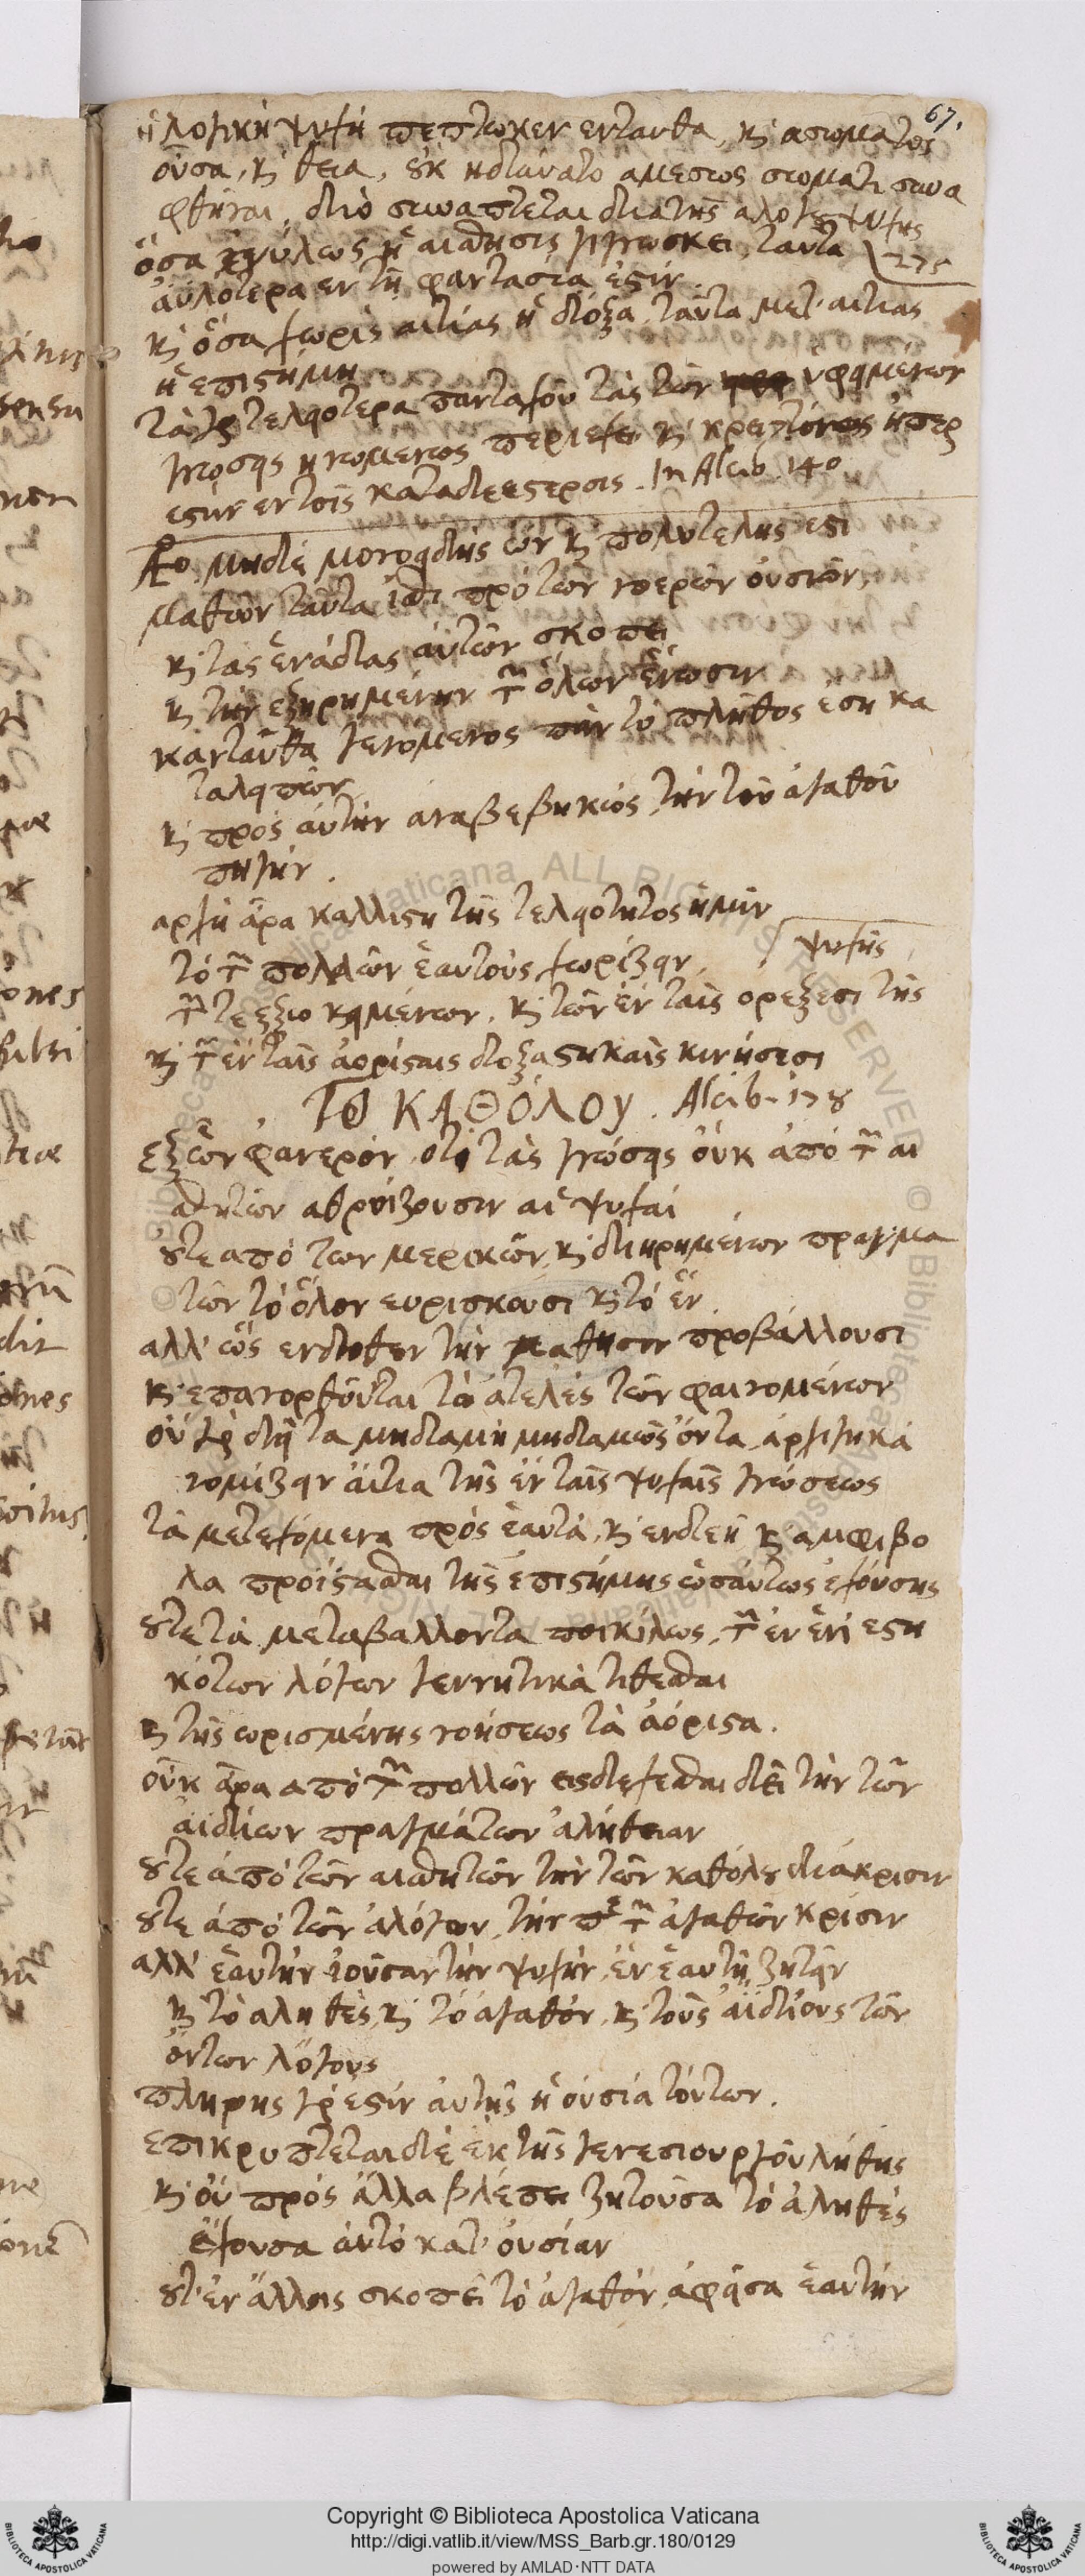 67.
ἡ λογικὴ ψυχὴ πεπτωκεν ενταυθα, κỳ ασωματος
οὖσα, κỳ θεια, ȣκ ηδύνατο αμεσως σωματι συνα
φθῆναι, διὸ συναπτεται δια τῆς αλογȣ ψυχῆς
ὅσα ἐνύλως ἡ αισθησις γινωσκει, ταυτα 275
ἀυλότερα εν τῇ φαντασια ἐστίν.
κỳ ὅσα χωρὶς αιτίας ἡ δόξα, ταῦτα μετ' αιτιας
ἡ επιστήμη
τὰ γὰρ τελειοτερα πανταχοῦ τὰς τῶν ὑφειμένων
γνωσεις ηνωμενως περιεχει κỳ κρειττόνως ἤπερ
εστιν εν τοῖς καταδεεστεροις. In Alcib. 140
μηδὲ μονοειδὴς ὢν κỳ πολυτελης εστι
μαθὼν ταῦτα ἴθι πρὸ τῶν νοερῶν ουσιῶν,
κỳ τας ἑνάδας αὐτῶν σκοπει
κỳ τὴν εξηρημένην τῶν ὅλων ἕνωσιν
κἀνταῦθα γενόμενος πᾶν τὸ πλῆθος ἔση κα
ταλειπών
κỳ πρὸς αὐτὴν αναβεβηκὼς τὴν τοῦ ἀγαθοῦ
πηγήν.
αρχὴ ἄρα καλλιστη τῆς τελειοτητος ἡμῖν
τὸ τῶν πολλῶν ἑαυτοὺς χωρίζειν, ψυχῆς
τῶν τε εξω κειμένων, κỳ τῶν ἐν ταῖς ορέξεσι τῆς
κỳ τῶν ἐν ταῖς ἀορίστοις δοξαστικαῖς κινήσεσι
Τὸ ΚΑΘΌΛΟΥ. Alcib. 178
εξ ὧν φανερόν, οτι τὰς γνώσεις οὐκ ἀπὸ τῶν αι
σθητῶν αθροίζουσιν αἱ ψυχαί
ȣτε απὸ των μερικῶν, κỳ διηρημένων πραγμα
των τὸ ὅλον ευρισκουσι κỳ τὸ ἕν.
αλλ' ὡς ενδοθεν τὴν μαθησιν προβάλλουσι
κỳ επανορθοῦνται τὸ ατελὲς τῶν φαινομένων
οὐ γὰρ δεῖ τα μηδαμὴ μηδαμῶς ὄντα, ἀρχηγικὰ
νομίζειν ἄιτια τῆς ἐν ταῖς ψυχαῖς γνώσεως
τὰ μετεχόμενα πρὸς ἑαυτά, κỳ ενδεῆ κỳ αμφιβο
λα προΐστασθαι τῆς ἐπιστήμης ὡσαύτως ἐχούσης
ȣτε τὰ μεταβαλλοντα ποικίλως, τῶν ἐν ἑνὶ εστη
κότων λόγων γεννητικὰ τιθεσθαι
κỳ τῆς ωρισμένης νοήσεως τὰ ἀόριστα.
οὐκ ἄρα απὸ τῶν πολλῶν εισδεχεσθαι δεῖ τὴν τῶν
ἀϊδίων πραγμάτων ἀλήθειαν
ȣτε ἀπὸ τῶν αισθητῶν τὴν τῶν καθόλȣ διάκρισιν
ȣτε ἀπὸ τῶν ἀλόγων, τὴν περὶ τῶν ἀγαθῶν κρίσιν
αλλ' ἑαυτὴν ἰοῦσαν τὴν ψυχὴν, ἐν ἑαυτῇ ζητεῖν
κỳ τὸ αληθὲς, κỳ τὸ ἀγαθόν, κỳ τοὺς ἀϊδίους τῶν
ὄντων λόγους
πληρης γάρ ἐστὶν ἀυτῆς ἡ οὐσία τούτων.
επικρυπτεται δὲ ἐκ τῆς γενεσιουργοῦ λήθης
κỳ οὐ πρὸς ἄλλα βλέπει ζητοῦσα τὸ ἀληθὲς
ἔχουσα ἀυτὸ κατ' ουσίαν
ȣτ' ἐν ἄλλοις σκοπεῖ τὸ ἀγαθόν, ἀφεῖσα ἑαυτήν
Copyright © Biblioteca Apostolica Vaticana
http://digi.vatlib.it/view/MSS_Barb.gr.180/0129
powered by AMLAD·NTT DATA